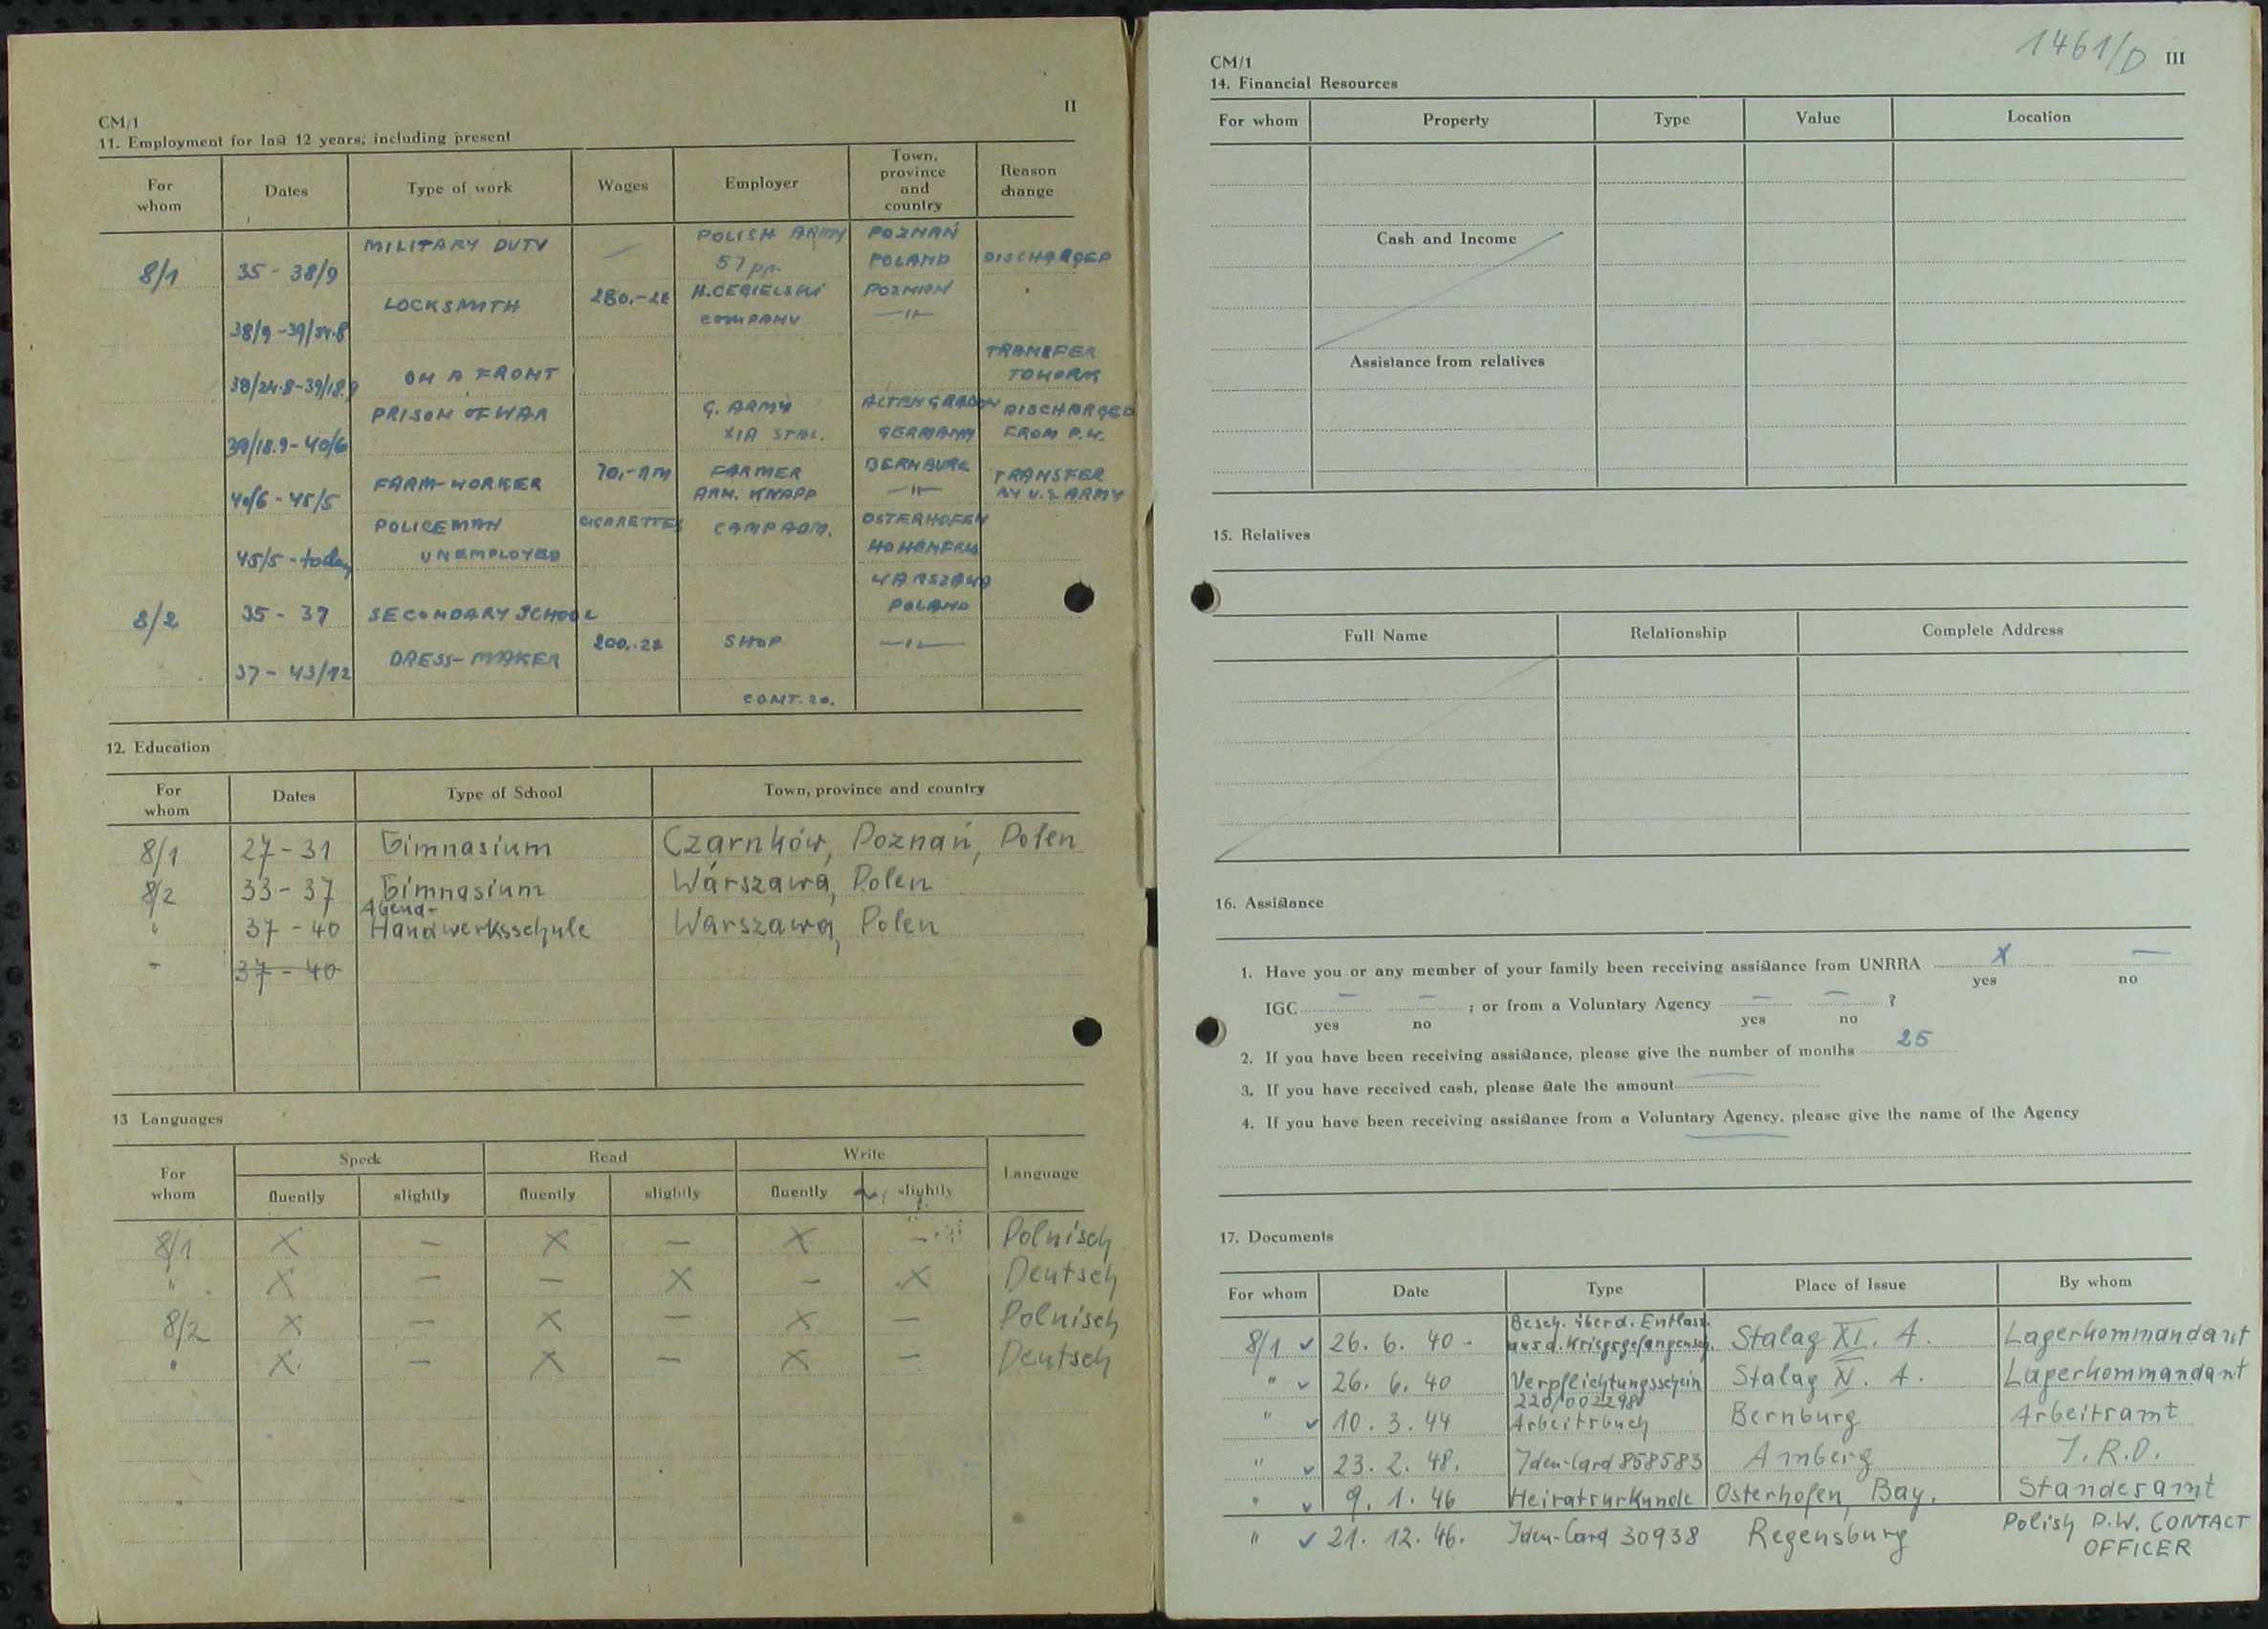 II
CM/1
11. Employment for last 12 years, including present
For whom Dates Type of work Wages Employer Town, province and country Reason change
MILITARY DUTY — POLISH ARMY POZNAŃ
8/1 35 - 38/9 57 pp. POLAND DISCHARGED
LOCKSMITH 280.- H. CEGIELSKI POZNAN
38/9 - 39/24.8 COMPANY —"—
TRANSFER
39/24.8 - 39/18.9 ON A FRONT TO WORK
PRISON OF WAR G. ARMY ALTENGRABOW DISCHARGED
39/18.9 - 40/6 XIA STAL. GERMANY FROM P.W.
70,- RM FARMER BERNBURG TRANSFER
40/6 - 45/5 FARM-WORKER KNAPP —"— BY U.S ARMY
POLICEMAN CIGARETTES CAMP ADM. OSTERHOFEN
45/5 - today UNEMPLOYED HOHENFELS
WARSZAWA
8/2 35 - 37 SECONDARY SCHOOL POLAND
200.- SHOP —"—
37 - 43/12 DRESS-MAKER
CONT. 20.
12. Education
For whom Dates Type of School Town, province and country
8/1 27 - 31 Gimnasium Czarnków, Poznań, Polen
8/2 33 - 37 Gimnasium Warszawa, Polen
Abend-
" 37 - 40 Handwerksschule Warszawa, Polen
" 37 - 40
13 Languages
For whom Speck Read Write Language
fluently slightly fluently slightly fluently slightly
8/1 X — X — X — Polnisch
" X — — X — X Deutsch
8/2 X — X — X — Polnisch
" X — X — X — Deutsch
1461/D III
CM/1
14. Financial Resources
For whom Property Type Value Location
Cash and Income
Assistance from relatives
15. Relatives
Full Name Relationship Complete Address
16. Assistance
1. Have you or any member of your family been receiving assistance from UNRRA X —
yes no
IGC — — ; or from a Voluntary Agency — — ?
yes no yes no
2. If you have been receiving assistance, please give the number of months 25
3. If you have received cash, please state the amount
4. If you have been receiving assistance from a Voluntary Agency, please give the name of the Agency
17. Documents
For whom Date Type Place of Issue By whom
Besch. über d. Entlass.
8/1 ✓ 26. 6. 40 - aus d. Kriegsgefangensch. Stalag XI. A. Lagerkommandant
" ✓ 26. 6. 40 Verpflichtungsschein Stalag XI. A. Lagerkommandant
220/002298
" ✓ 10. 3. 44 Arbeitsbuch Bernburg Arbeitsamt
" ✓ 23. 2. 48. Iden-Card 858583 Amberg I.R.O.
" ✓ 9. 1. 46 Heiratsurkunde Osterhofen, Bay. Standesamt
" ✓ 21. 12. 46. Iden-Card 30938 Regensburg Polish P.W. CONTACT
OFFICER